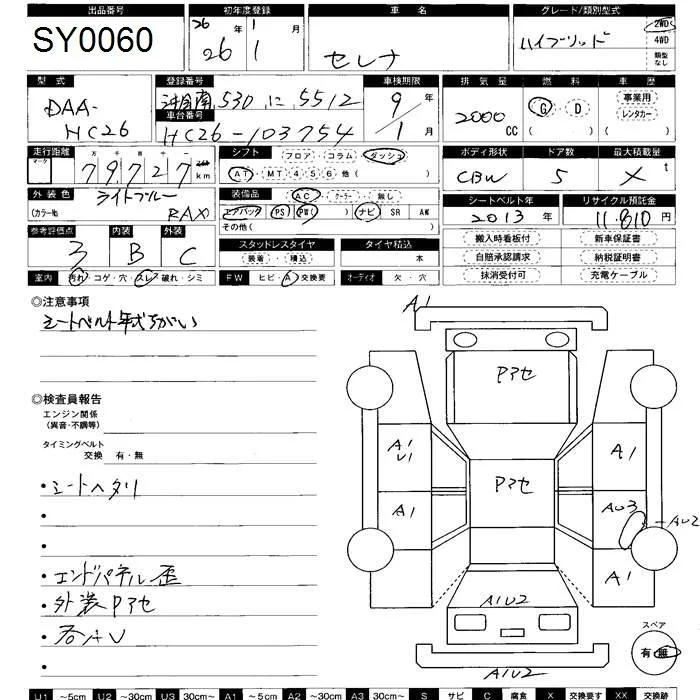 出品番号 初年度登録 車名 グレード/類別型式
SY0060 26 26年 1 1月 セレナ ハイブリッド 2WD 4WD 類型なし
型式 登録番号 車検期限 排気量 燃料 車歴
DAA-HC26 湘南530に5512 9年 1月 2000CC G・D ( ) 事業用 レンタカー ( )
車台番号
HC26-103754
走行距離 シフト ボディ形状 ドア数 最大積載量
マーク 万 千 百 十 一 フロア・コラム・ダッシュ
79727km AT・MT 4 5 6 他( ) CBW 5 X t
外装色 装備品 シートベルト年 リサイクル預託金
ライトブルー AC・クーラー・無し 2013年 11.810円
(カラー№ RAX) エアバッグ PS PW( ) ナビ SR AW
その他( )
参考評価点 内装 外装 スタッドレスタイヤ タイヤ積込 搬入時看板付 新車保証書
3 B C 装着・積込 本 自賠承認請求 納税証明書
室内 汚れ・コゲ・穴・スレ・破れ・シミ FW ヒビ・A・交換要 オーディオ 欠・穴 抹消受付可 充電ケーブル
◎注意事項
シートベルト年式ちがい
◎検査員報告
エンジン関係
(異音・不調等)
タイミングベルト
交換 有・無
・シートヘタリ
・エンドパネル歪
・外装Pアセ
・各AU
A1
Pアセ
A1 U1
A1
Pアセ
AU3
AU2
A1
A1
A1U2
スペア
有・無
A1U2
U1 ~5cm U2 ~30cm U3 30cm~ A1 ~5cm A2 ~30cm A3 30cm~ S サビ C 腐食 X 交換要す XX 交換跡